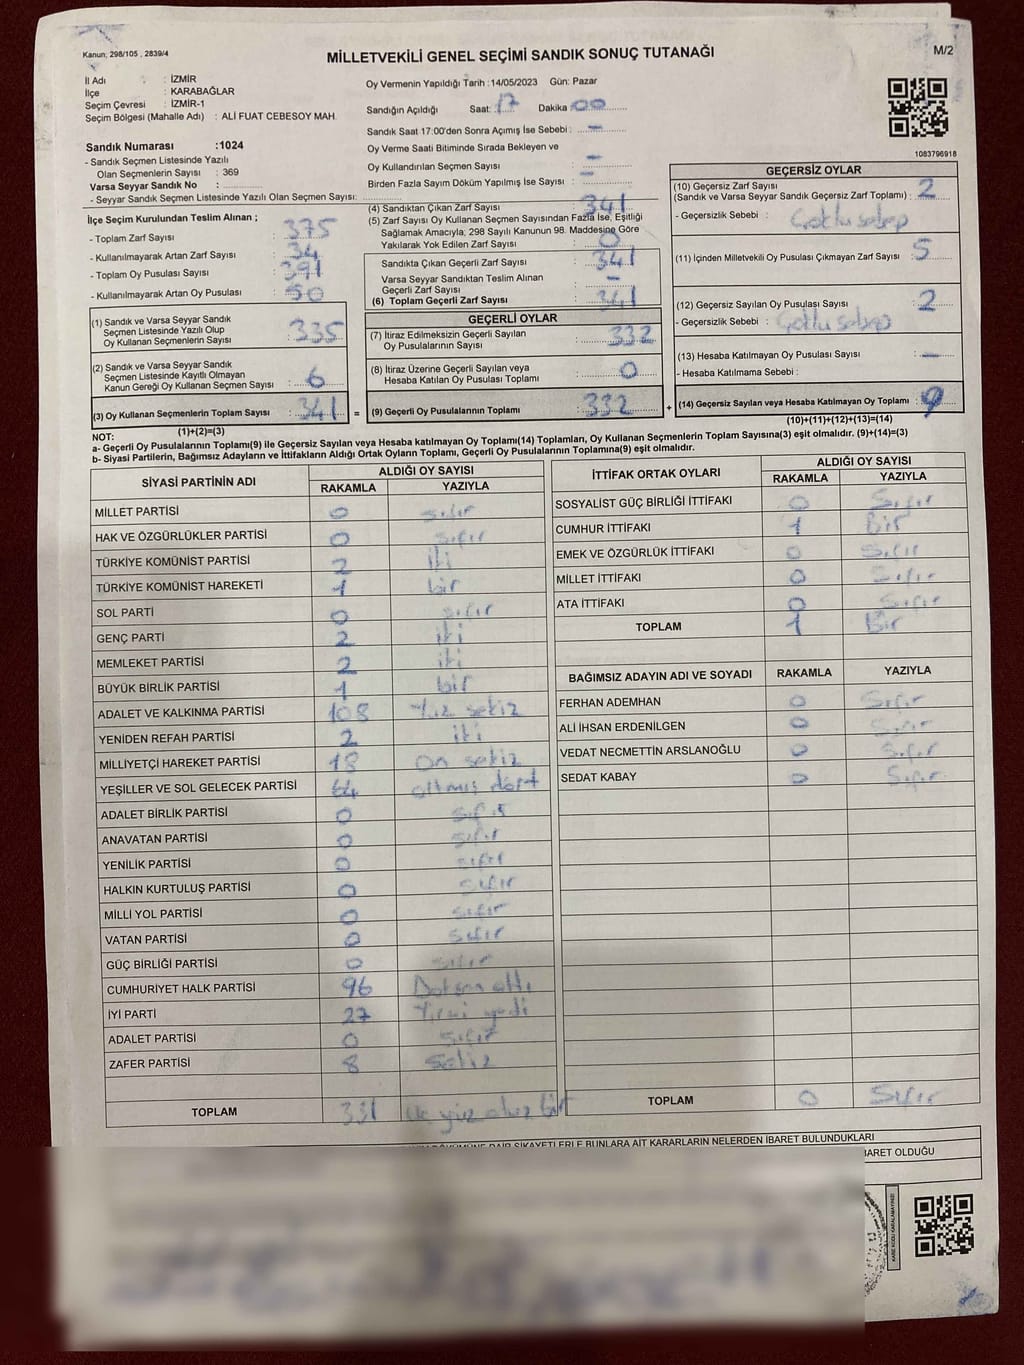 Kanun; 298/105 , 2839/4
MİLLETVEKİLİ GENEL SEÇİMİ SANDIK SONUÇ TUTANAĞI
M/2
İl Adı : İZMİR
İlçe : KARABAĞLAR
Seçim Çevresi : İZMİR-1
Seçim Bölgesi (Mahalle Adı) : ALİ FUAT CEBESOY MAH.
Oy Vermenin Yapıldığı Tarih :14/05/2023 Gün: Pazar
Sandığın Açıldığı Saat: 17 Dakika 00
Sandık Saat 17:00'den Sonra Açımış İse Sebebi : -
Oy Verme Saati Bitiminde Sırada Bekleyen ve
Oy Kullandırılan Seçmen Sayısı : -
Birden Fazla Sayım Döküm Yapılmış İse Sayısı : -
Sandık Numarası :1024
- Sandık Seçmen Listesinde Yazılı
Olan Seçmenlerin Sayısı : 369
Varsa Seyyar Sandık No :
- Seyyar Sandık Seçmen Listesinde Yazılı Olan Seçmen Sayısı:
1083796918
İlçe Seçim Kurulundan Teslim Alınan ;
- Toplam Zarf Sayısı : 375
- Kullanılmayarak Artan Zarf Sayısı : 34
- Toplam Oy Pusulası Sayısı : 391
- Kullanılmayarak Artan Oy Pusulası : 50
(1) Sandık ve Varsa Seyyar Sandık
Seçmen Listesinde Yazılı Olup
Oy Kullanan Seçmenlerin Sayısı : 335
(2) Sandık ve Varsa Seyyar Sandık
Seçmen Listesinde Kayıtlı Olmayan
Kanun Gereği Oy Kullanan Seçmen Sayısı : 6
(3) Oy Kullanan Seçmenlerin Toplam Sayısı : 341
(1)+(2)=(3)
(4) Sandıktan Çıkan Zarf Sayısı : 341
(5) Zarf Sayısı Oy Kullanan Seçmen Sayısından Fazla İse, Eşitliği
Sağlamak Amacıyla, 298 Sayılı Kanunun 98. Maddesine Göre
Yakılarak Yok Edilen Zarf Sayısı : 0
Sandıkta Çıkan Geçerli Zarf Sayısı : 341
Varsa Seyyar Sandıktan Teslim Alınan
Geçerli Zarf Sayısı : -
(6) Toplam Geçerli Zarf Sayısı : 341
GEÇERLİ OYLAR
(7) İtiraz Edilmeksizin Geçerli Sayılan
Oy Pusulalarının Sayısı : 332
(8) İtiraz Üzerine Geçerli Sayılan veya
Hesaba Katılan Oy Pusulası Toplamı : 0
= (9) Geçerli Oy Pusulalarının Toplamı : 332
GEÇERSİZ OYLAR
(10) Geçersiz Zarf Sayısı
(Sandık ve Varsa Seyyar Sandık Geçersiz Zarf Toplamı) : 2
- Geçersizlik Sebebi :
(11) İçinden Milletvekili Oy Pusulası Çıkmayan Zarf Sayısı : 5
(12) Geçersiz Sayılan Oy Pusulası Sayısı : 2
- Geçersizlik Sebebi :
(13) Hesaba Katılmayan Oy Pusulası Sayısı : -
- Hesaba Katılmama Sebebi :
+ (14) Geçersiz Sayılan veya Hesaba Katılmayan Oy Toplamı : 9
(10)+(11)+(12)+(13)=(14)
NOT:
a- Geçerli Oy Pusulalarının Toplamı(9) ile Geçersiz Sayılan veya Hesaba katılmayan Oy Toplamı(14) Toplamları, Oy Kullanan Seçmenlerin Toplam Sayısına(3) eşit olmalıdır. (9)+(14)=(3)
b- Siyasi Partilerin, Bağımsız Adayların ve İttifakların Aldığı Ortak Oyların Toplamı, Geçerli Oy Pusulalarının Toplamına(9) eşit olmalıdır.
SİYASİ PARTİNİN ADI ALDIĞI OY SAYISI
RAKAMLA YAZIYLA
MİLLET PARTİSİ 0 sıfır
HAK VE ÖZGÜRLÜKLER PARTİSİ 0 sıfır
TÜRKİYE KOMÜNİST PARTİSİ 2 iki
TÜRKİYE KOMÜNİST HAREKETİ 1 bir
SOL PARTİ 0 sıfır
GENÇ PARTİ 2 iki
MEMLEKET PARTİSİ 2 iki
BÜYÜK BİRLİK PARTİSİ 1 bir
ADALET VE KALKINMA PARTİSİ 108 Yüz sekiz
YENİDEN REFAH PARTİSİ 2 iki
MİLLİYETÇİ HAREKET PARTİSİ 18 on sekiz
YEŞİLLER VE SOL GELECEK PARTİSİ 64 altmış dört
ADALET BİRLİK PARTİSİ 0 sıfır
ANAVATAN PARTİSİ 0 sıfır
YENİLİK PARTİSİ 0 sıfır
HALKIN KURTULUŞ PARTİSİ 0 sıfır
MİLLİ YOL PARTİSİ 0 sıfır
VATAN PARTİSİ 0 sıfır
GÜÇ BİRLİĞİ PARTİSİ 0 sıfır
CUMHURİYET HALK PARTİSİ 96 Doksan altı
İYİ PARTİ 27 Yirmi yedi
ADALET PARTİSİ 0 sıfır
ZAFER PARTİSİ 8 Sekiz
TOPLAM 331 üç yüz otuz bir
İTTİFAK ORTAK OYLARI ALDIĞI OY SAYISI
RAKAMLA YAZIYLA
SOSYALİST GÜÇ BİRLİĞİ İTTİFAKI 0 Sıfır
CUMHUR İTTİFAKI 1 Bir
EMEK VE ÖZGÜRLÜK İTTİFAKI 0 Sıfır
MİLLET İTTİFAKI 0 Sıfır
ATA İTTİFAKI 0 Sıfır
TOPLAM 1 Bir
BAĞIMSIZ ADAYIN ADI VE SOYADI RAKAMLA YAZIYLA
FERHAN ADEMHAN 0 Sıfır
ALİ İHSAN ERDENİLGEN 0 Sıfır
VEDAT NECMETTİN ARSLANOĞLU 0 Sıfır
SEDAT KABAY 0 Sıfır
TOPLAM 0 Sıfır
DAİR ŞİKAYETLERLE BUNLARA AİT KARARLARIN NELERDEN İBARET BULUNDUKLARI
BARET OLDUĞU